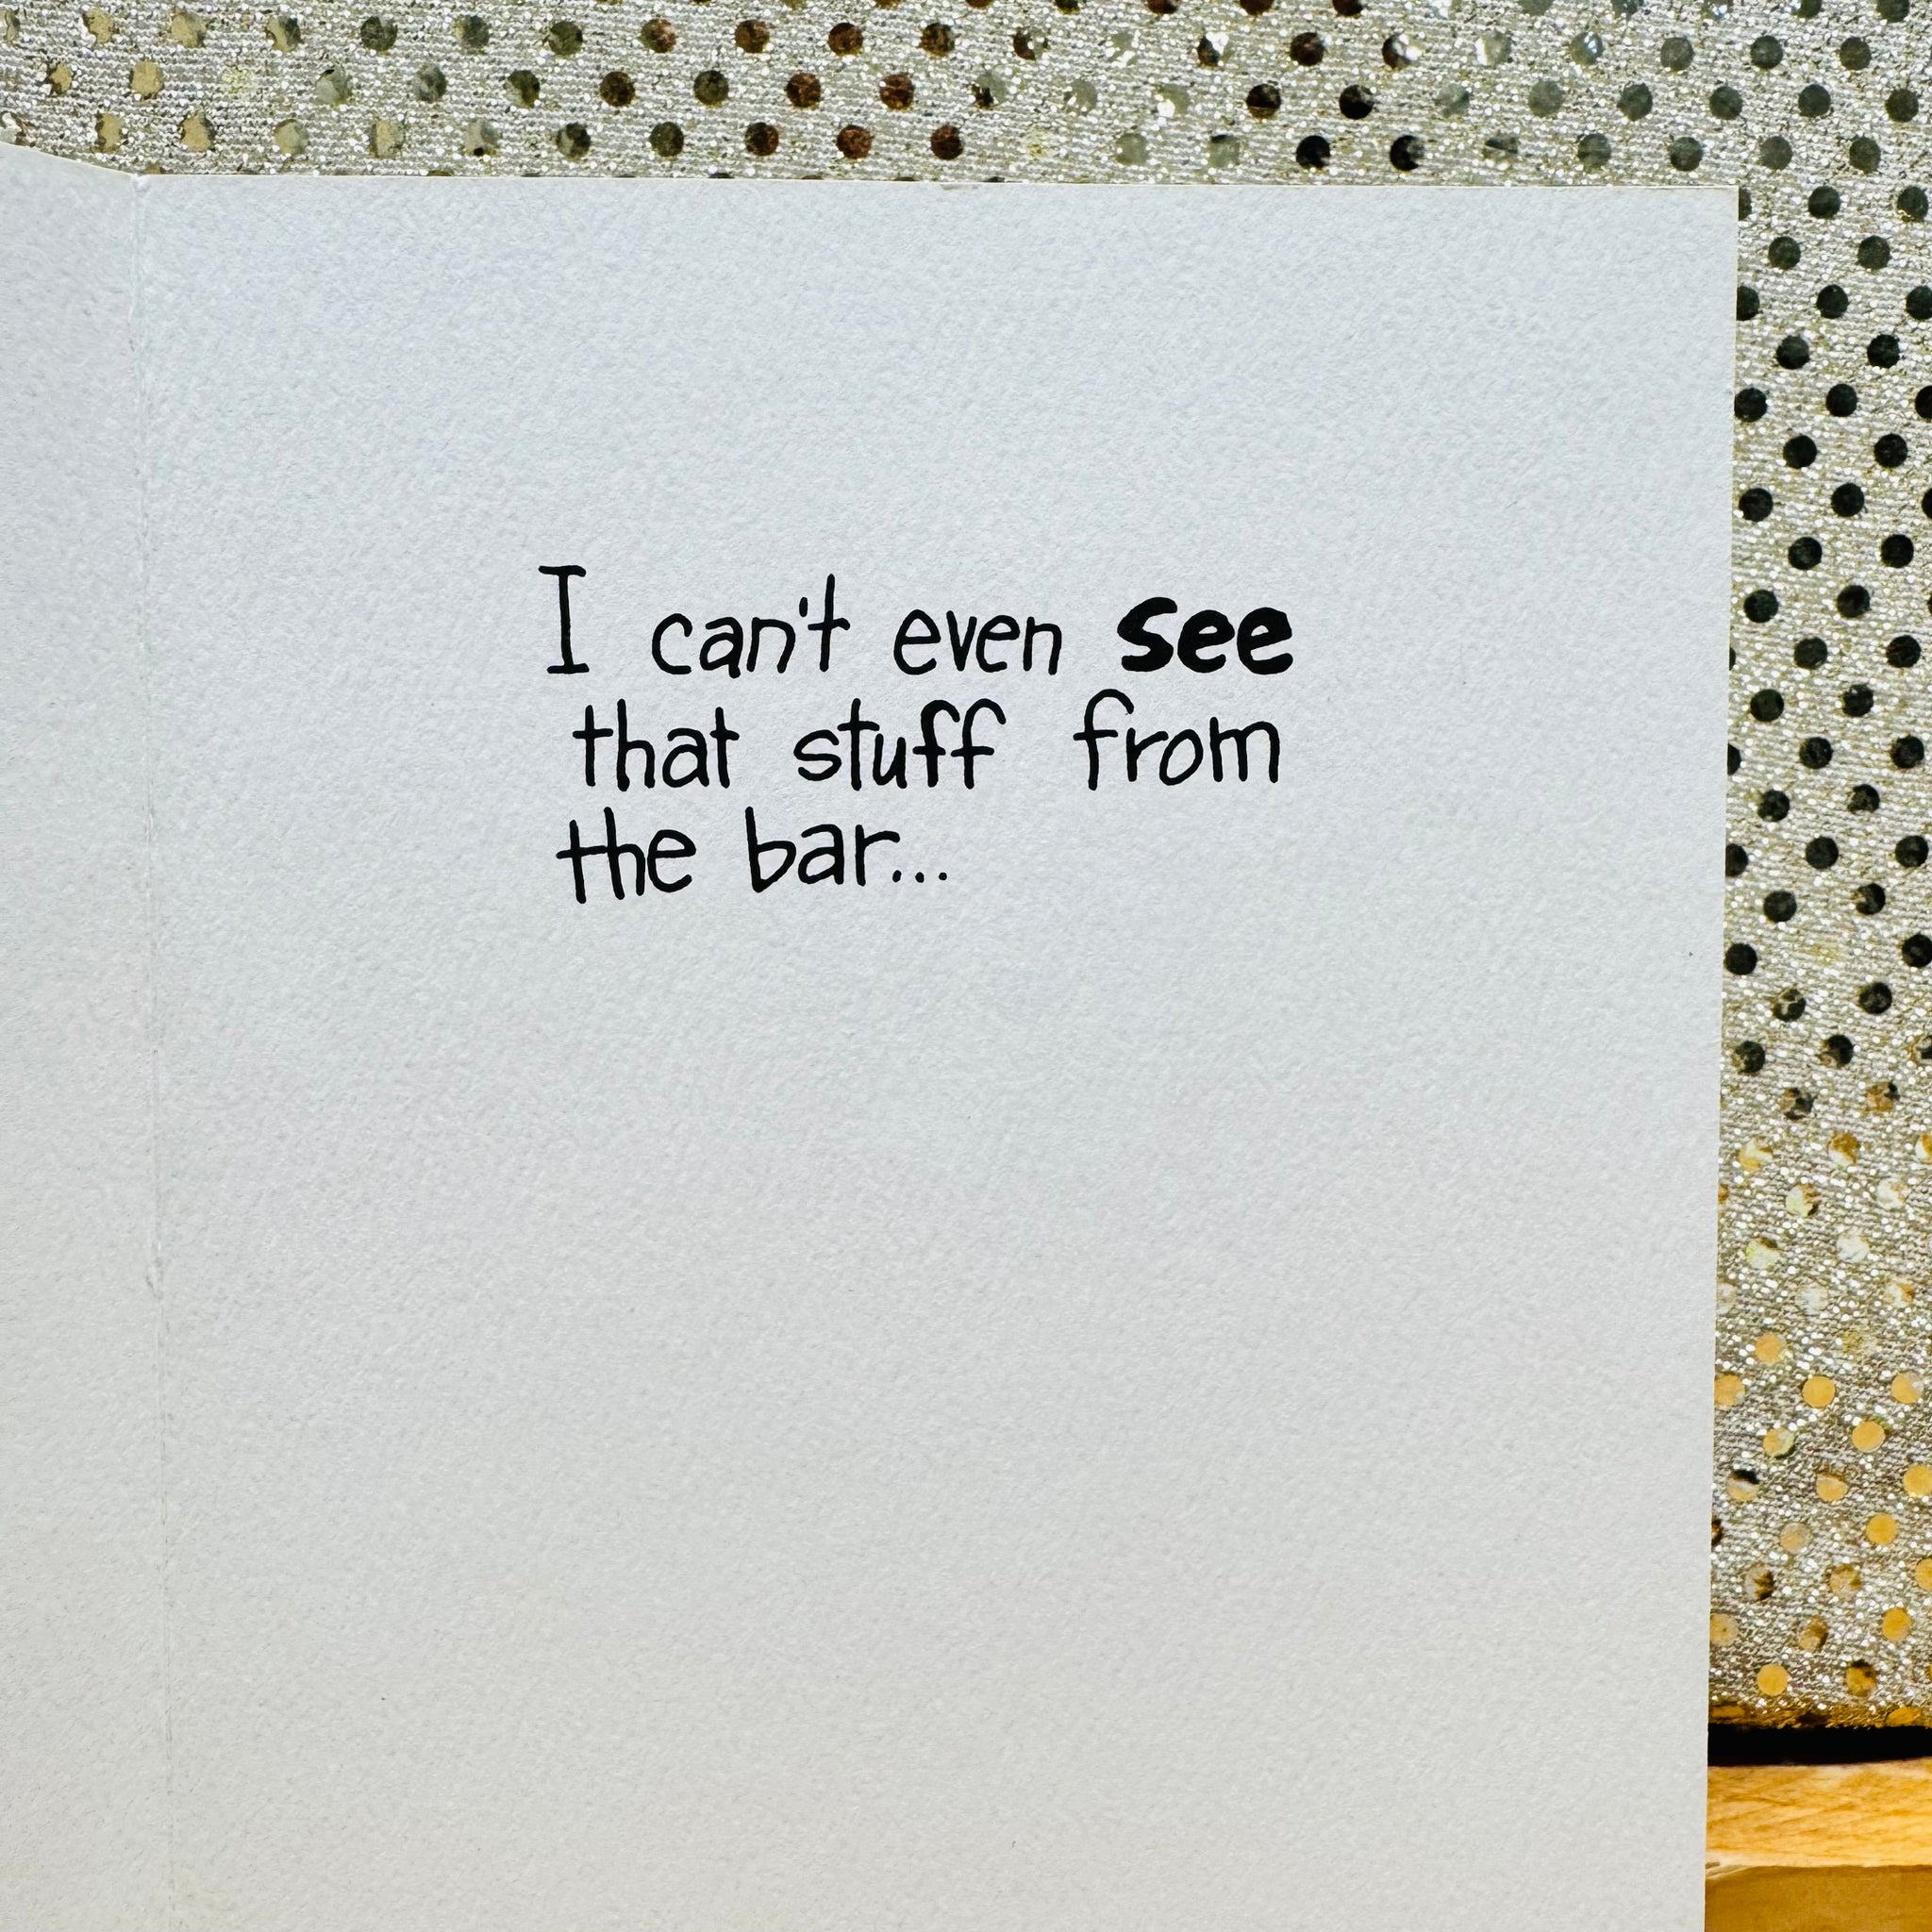 I can't even see
that stuff from
the bar...